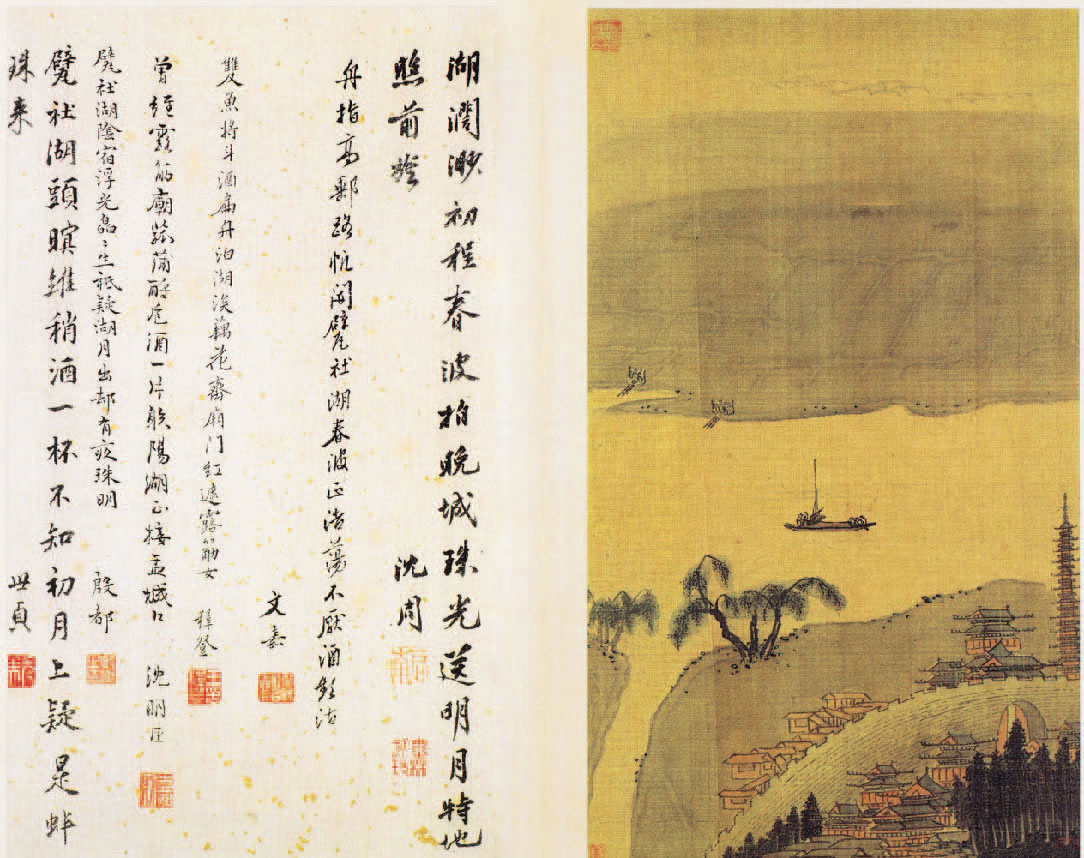 湖濶渺初程春波拍晚城珠光送明月特地
照前旌
沈周
舟指高郵路甓社湖春波正浩蕩不厭酒頻沽
文嘉
雙魚將斗酒扁舟泊湖涘藕花齊廟門紅遮露筋女 穉登
曾經露筋廟菰蒲酹巵酒一片射陽湖正接盂城口 沈明臣
甓社湖陰宿浮光皛〻生秪疑湖月出却有夜珠明 殷都
甓社湖頭暝維稍酒一杯不知初月上疑是蚌
珠来 世貞